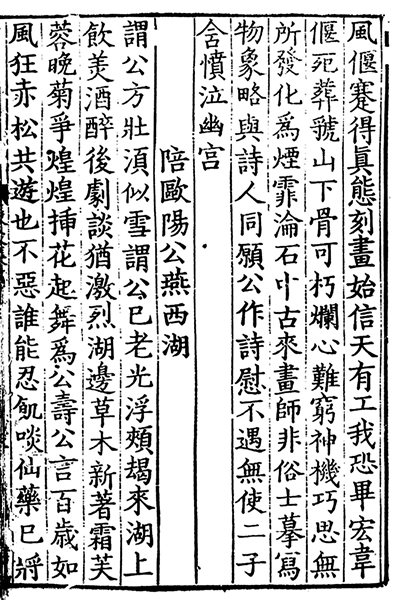 風偃蹇得眞態刻畫始信天有工我恐畢宏韋
偃死葬虢山下骨可朽爛心難窮神機巧思無
所發化爲煙霏淪石中古來畫師非俗士摹寫
物象略與詩人同願公作詩慰不遇無使二子
含憤泣幽宮
陪歐陽公燕西湖
謂公方壯湏似雪謂公已老光浮頰朅來湖上
飲羙酒醉後劇談猶激烈湖邊草木新著霜芙
蓉晚菊爭煌煌揷花起舞爲公壽公言百歲如
風狂赤松共遊也不惡誰能忍飢啖仙藥已將